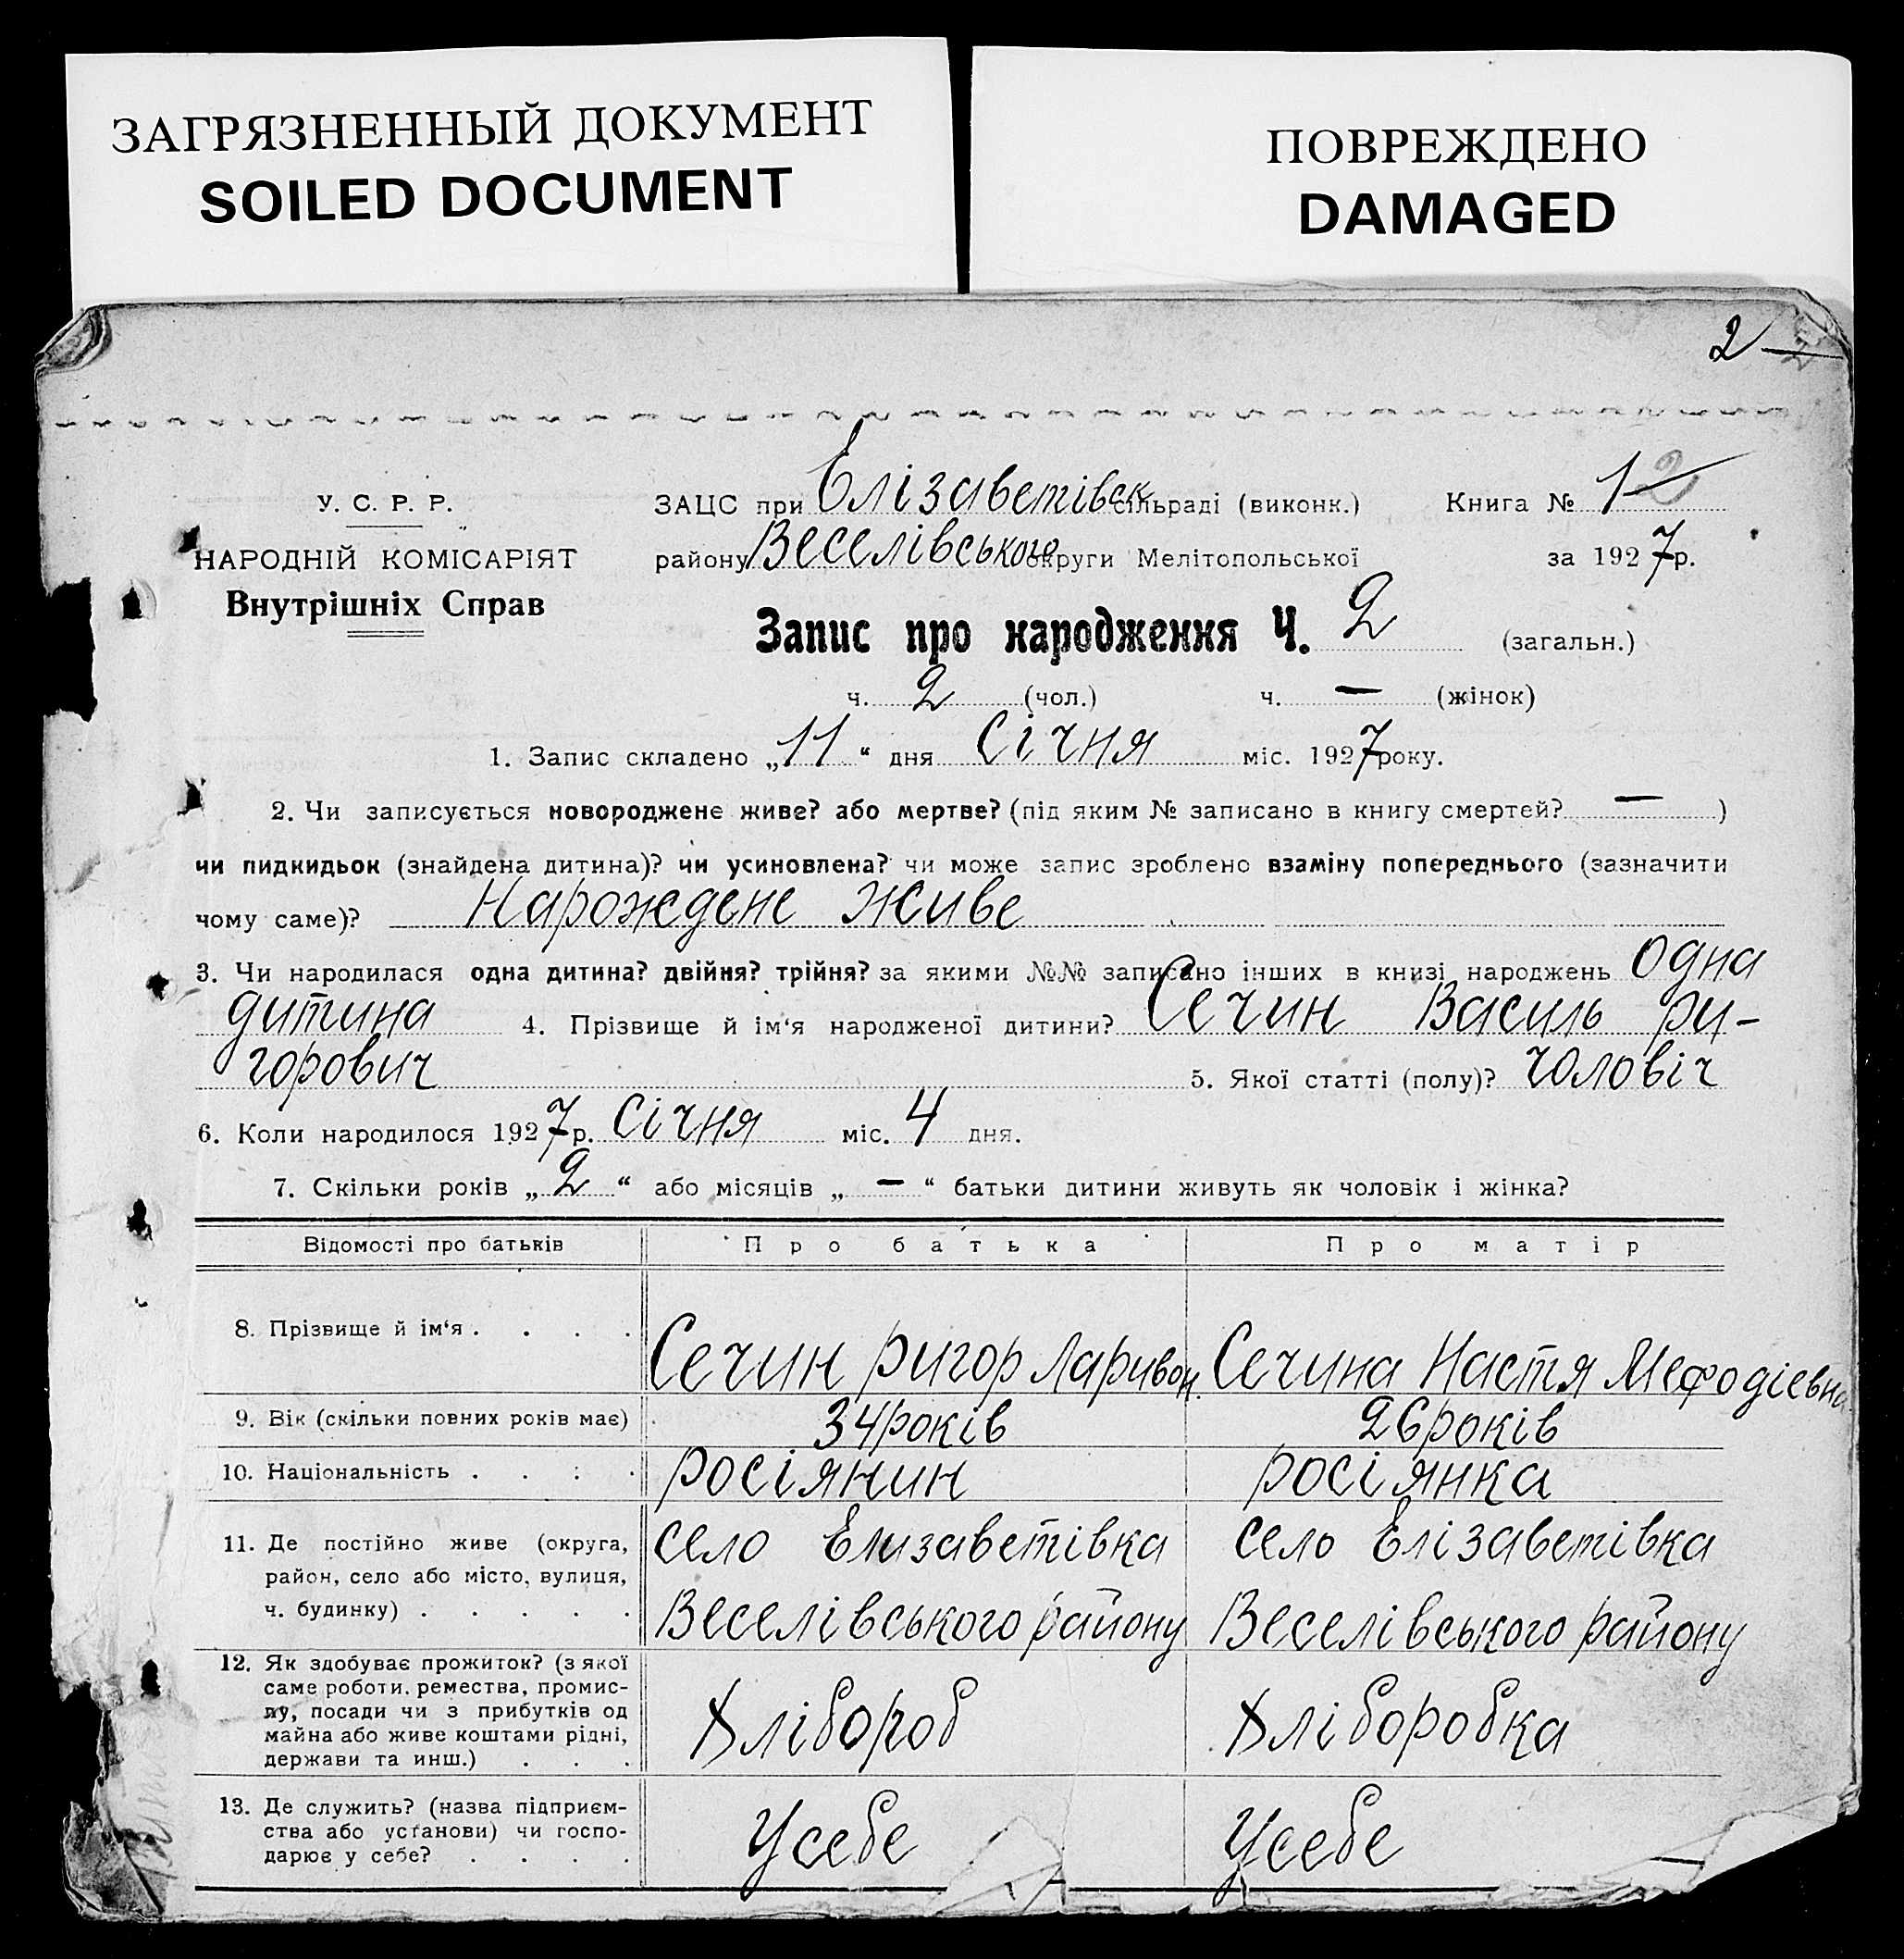 ЗАГРЯЗНЕННЫЙ ДОКУМЕНТ
SOILED DOCUMENT
ПОВРЕЖДЕНО
DAMAGED
2
У. С. Р. Р.
НАРОДНІЙ КОМІСАРІЯТ
Внутрішніх Справ
ЗАЦС при Єлізаветівск сільраді (виконк.)
району Веселівського округи Мелітопольської
Книга № 1 2
за 1927 р.
Запис про народження Ч. 2 (загальн.)
ч. 2 (чол.) ч. — (жінок)
1. Запис складено „11“ дня Січня міс. 1927 року.
2. Чи записується новороджене живе? або мертве? (під яким № записано в книгу смертей? — )
чи пидкидьок (знайдена дитина)? чи усиновлена? чи може запис зроблено взаміну попереднього (зазначити
чому саме)? Нарождене живе
3. Чи народилася одна дитина? двійня? трійня? за якими №№ записано інших в книзі народжень одна
дитина 4. Прізвище й ім‘я народженої дитини? Сечин Василь Ри-
горович 5. Якої статті (полу)? Чоловіч
6. Коли народилося 1927 р. Січня міс. 4 дня.
7. Скільки років „2“ або місяців „—“ батьки дитини живуть як чоловік і жінка?
Відомості про батьків Про батька Про матір
8. Прізвище й ім‘я . . . . Сечин Ригор Ларивон. Сечина Настя Мефодіевна
9. Вік (скільки повних років має) 34 років 26 років
10. Національність . . . . росіянин росіянка
11. Де постійно живе (округа,
район, село або місто, вулиця,
ч. будинку) . . . . .
село Елизаветівка
Веселівського району
село Елізаветівка
Веселівського району
12. Як здобуває прожиток? (з якої
саме роботи, ремества, промис-
лу, посади чи з прибутків од
майна або живе коштами рідні,
держави та инш.) . . .
Хлібороб
Хліборобка
13. Де служить? (назва підприєм-
ства або установи) чи госпо-
дарює у себе? . . . .
Усебе
Усебе